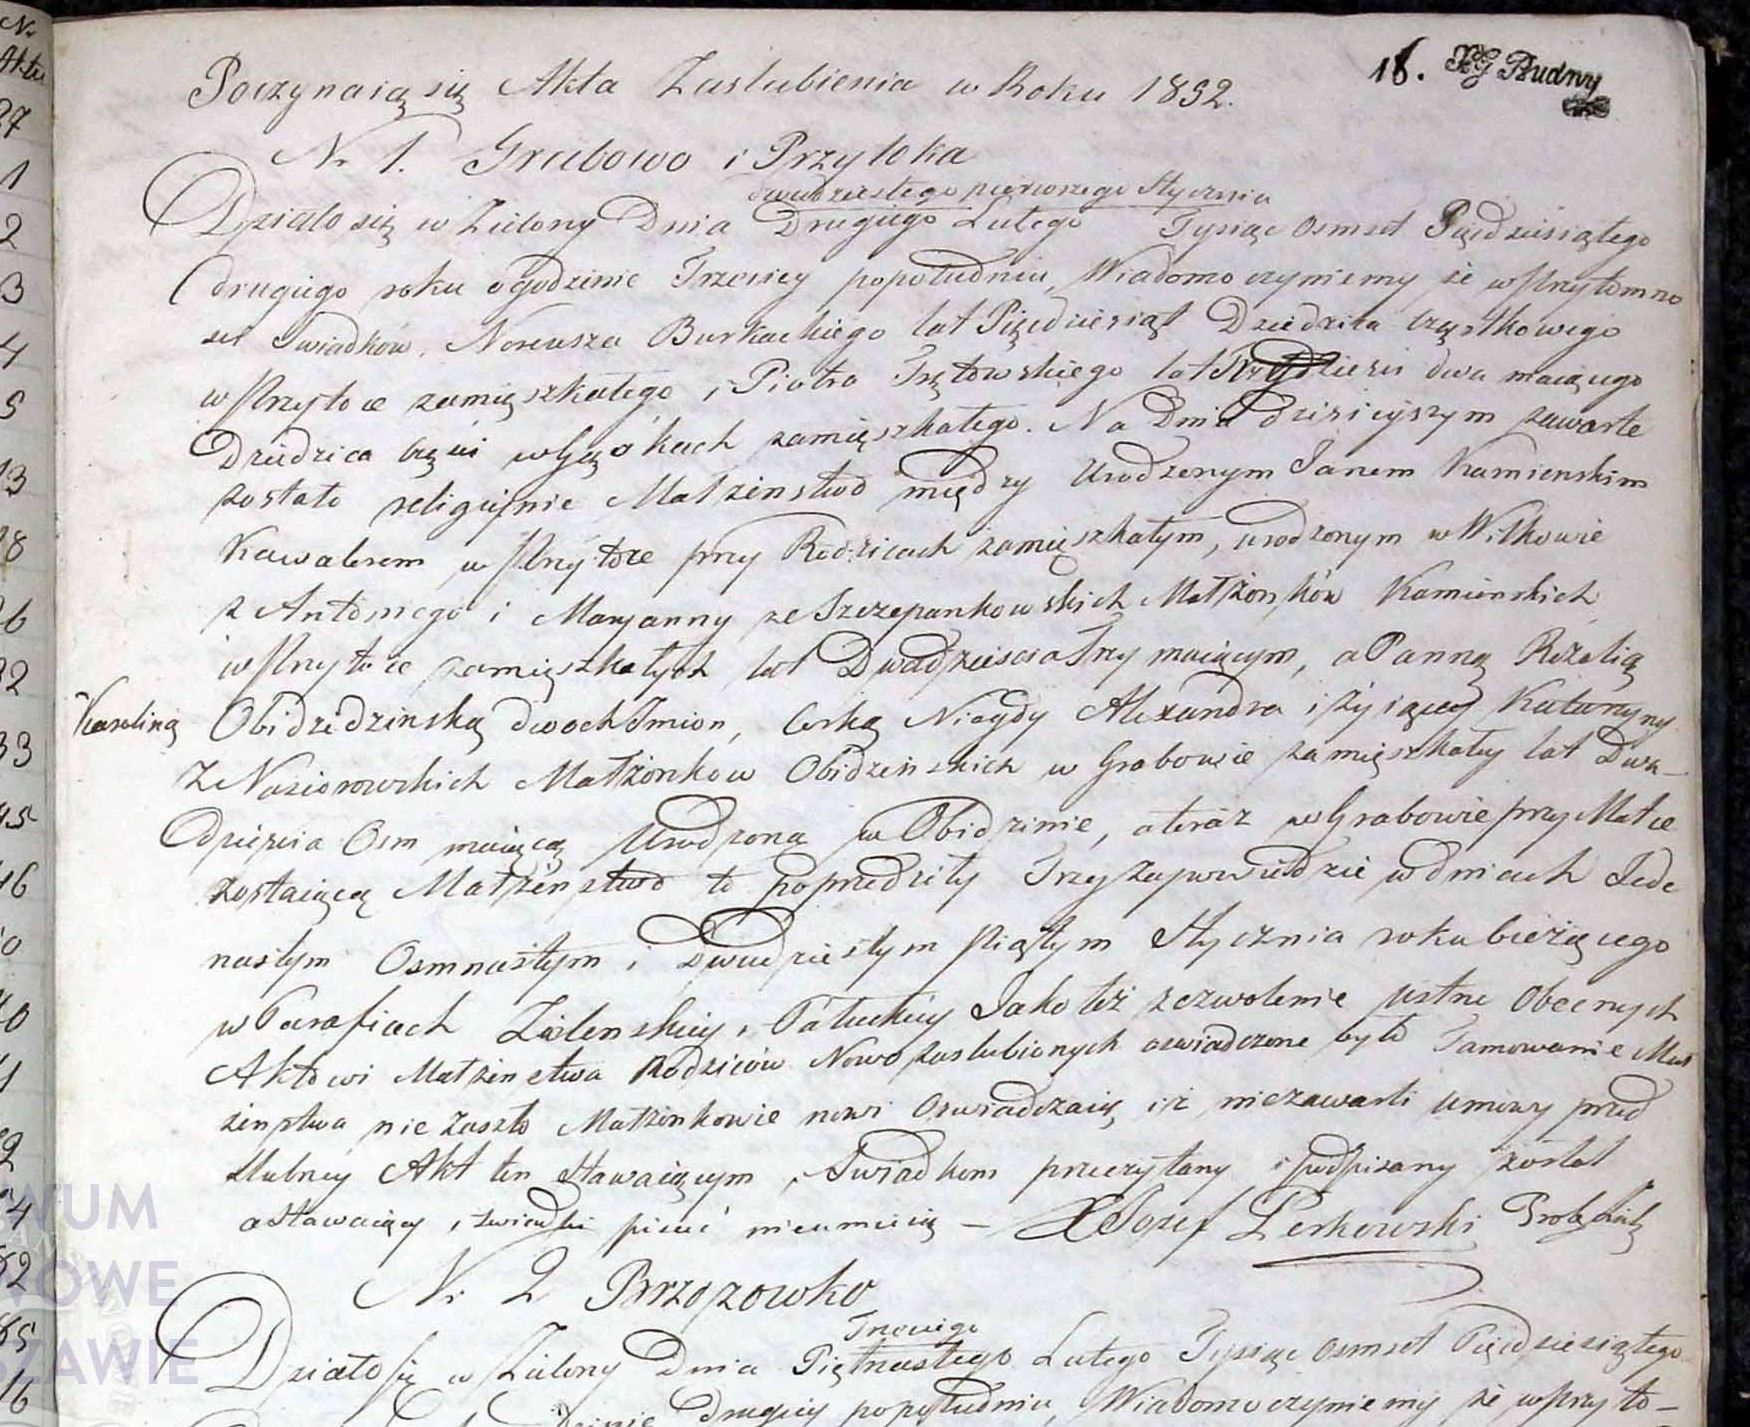 Poczynaią się Akta Zaslubienia w Roku 1852.
18. XG Rudny
Nr 1. Grabowo i Przytoka
dwudziestego pierwszego Stycznia
Działo się w Zielony Dnia Drugiego Lutego Tysiąc Osmset Pięcdziesiątego
drugiego roku o godzinie Trzeciey popołudniu, Wiadomo czyniemy że w Przytomno
sci Swiadków, Burkackiego lat Pięcdziesiąt Dziedzica cząstkowego
w Przytoce zamięszkałego i Piotra lat dwa maiącego
Dziedzica częsci w zamięszkałego. Na Dniu dzisieyszym zawarte
zostało religiynie Małzenstwo między Urodzonym Janem Kamienskim
Kawalerem w Przytoce przy Rodzicach zamięszkałym, urodzonym w Wilkowie
z Antoniego i Maryanny ze Szczepankowskich Małżonków Kamienskich
w Przytoce zamięszkałych lat Dwadziescia Trzy maiącym, a Panną Rozalią
Karoliną Obidzedzinską dwoch Imion, Corką Niegdy Alexandra i żyiącey Katarzyny
Z Nasiorowskich Małżonkow Obidzinskich w Grabowie zamięszkałey lat Dwa-
dziescia Osm maiącą Urodzoną w Obidzinie, a teraz w Grabowie przy Matce
zostaiącą Małżenstwo to poprzedziły Trzy Zapowiedzie w dniach Jede
nastym Osmnastym i Dwudziestym Piątym Stycznia roku bieżącego
w Parafiach Zielenskiey i Pałuckiey Jako też zezwolenie ustne Obecnych
Aktowi Małżenstwa Rodziców Nowo zaslubionych oswiadczone było Tamowanie Mał
żenstwa nie Zaszło Małżonkowie nowi Oswiadczaią iż niezawarli umowy przed
slubney Akt ten Stawaiącym i Swiadkom przeczytany i podpisany został
a Stawaiący i swiadki pisać nieumieią — X Jozef Perkowski
Nr 2 Brzozowko
Trzeciego
Działo się w Zielony Dnia Piętnastego Lutego Tysiąc Osmset Pięcdziesiątego
drugiey popołudniu, Wiadomo czyniemy że w Przyto-